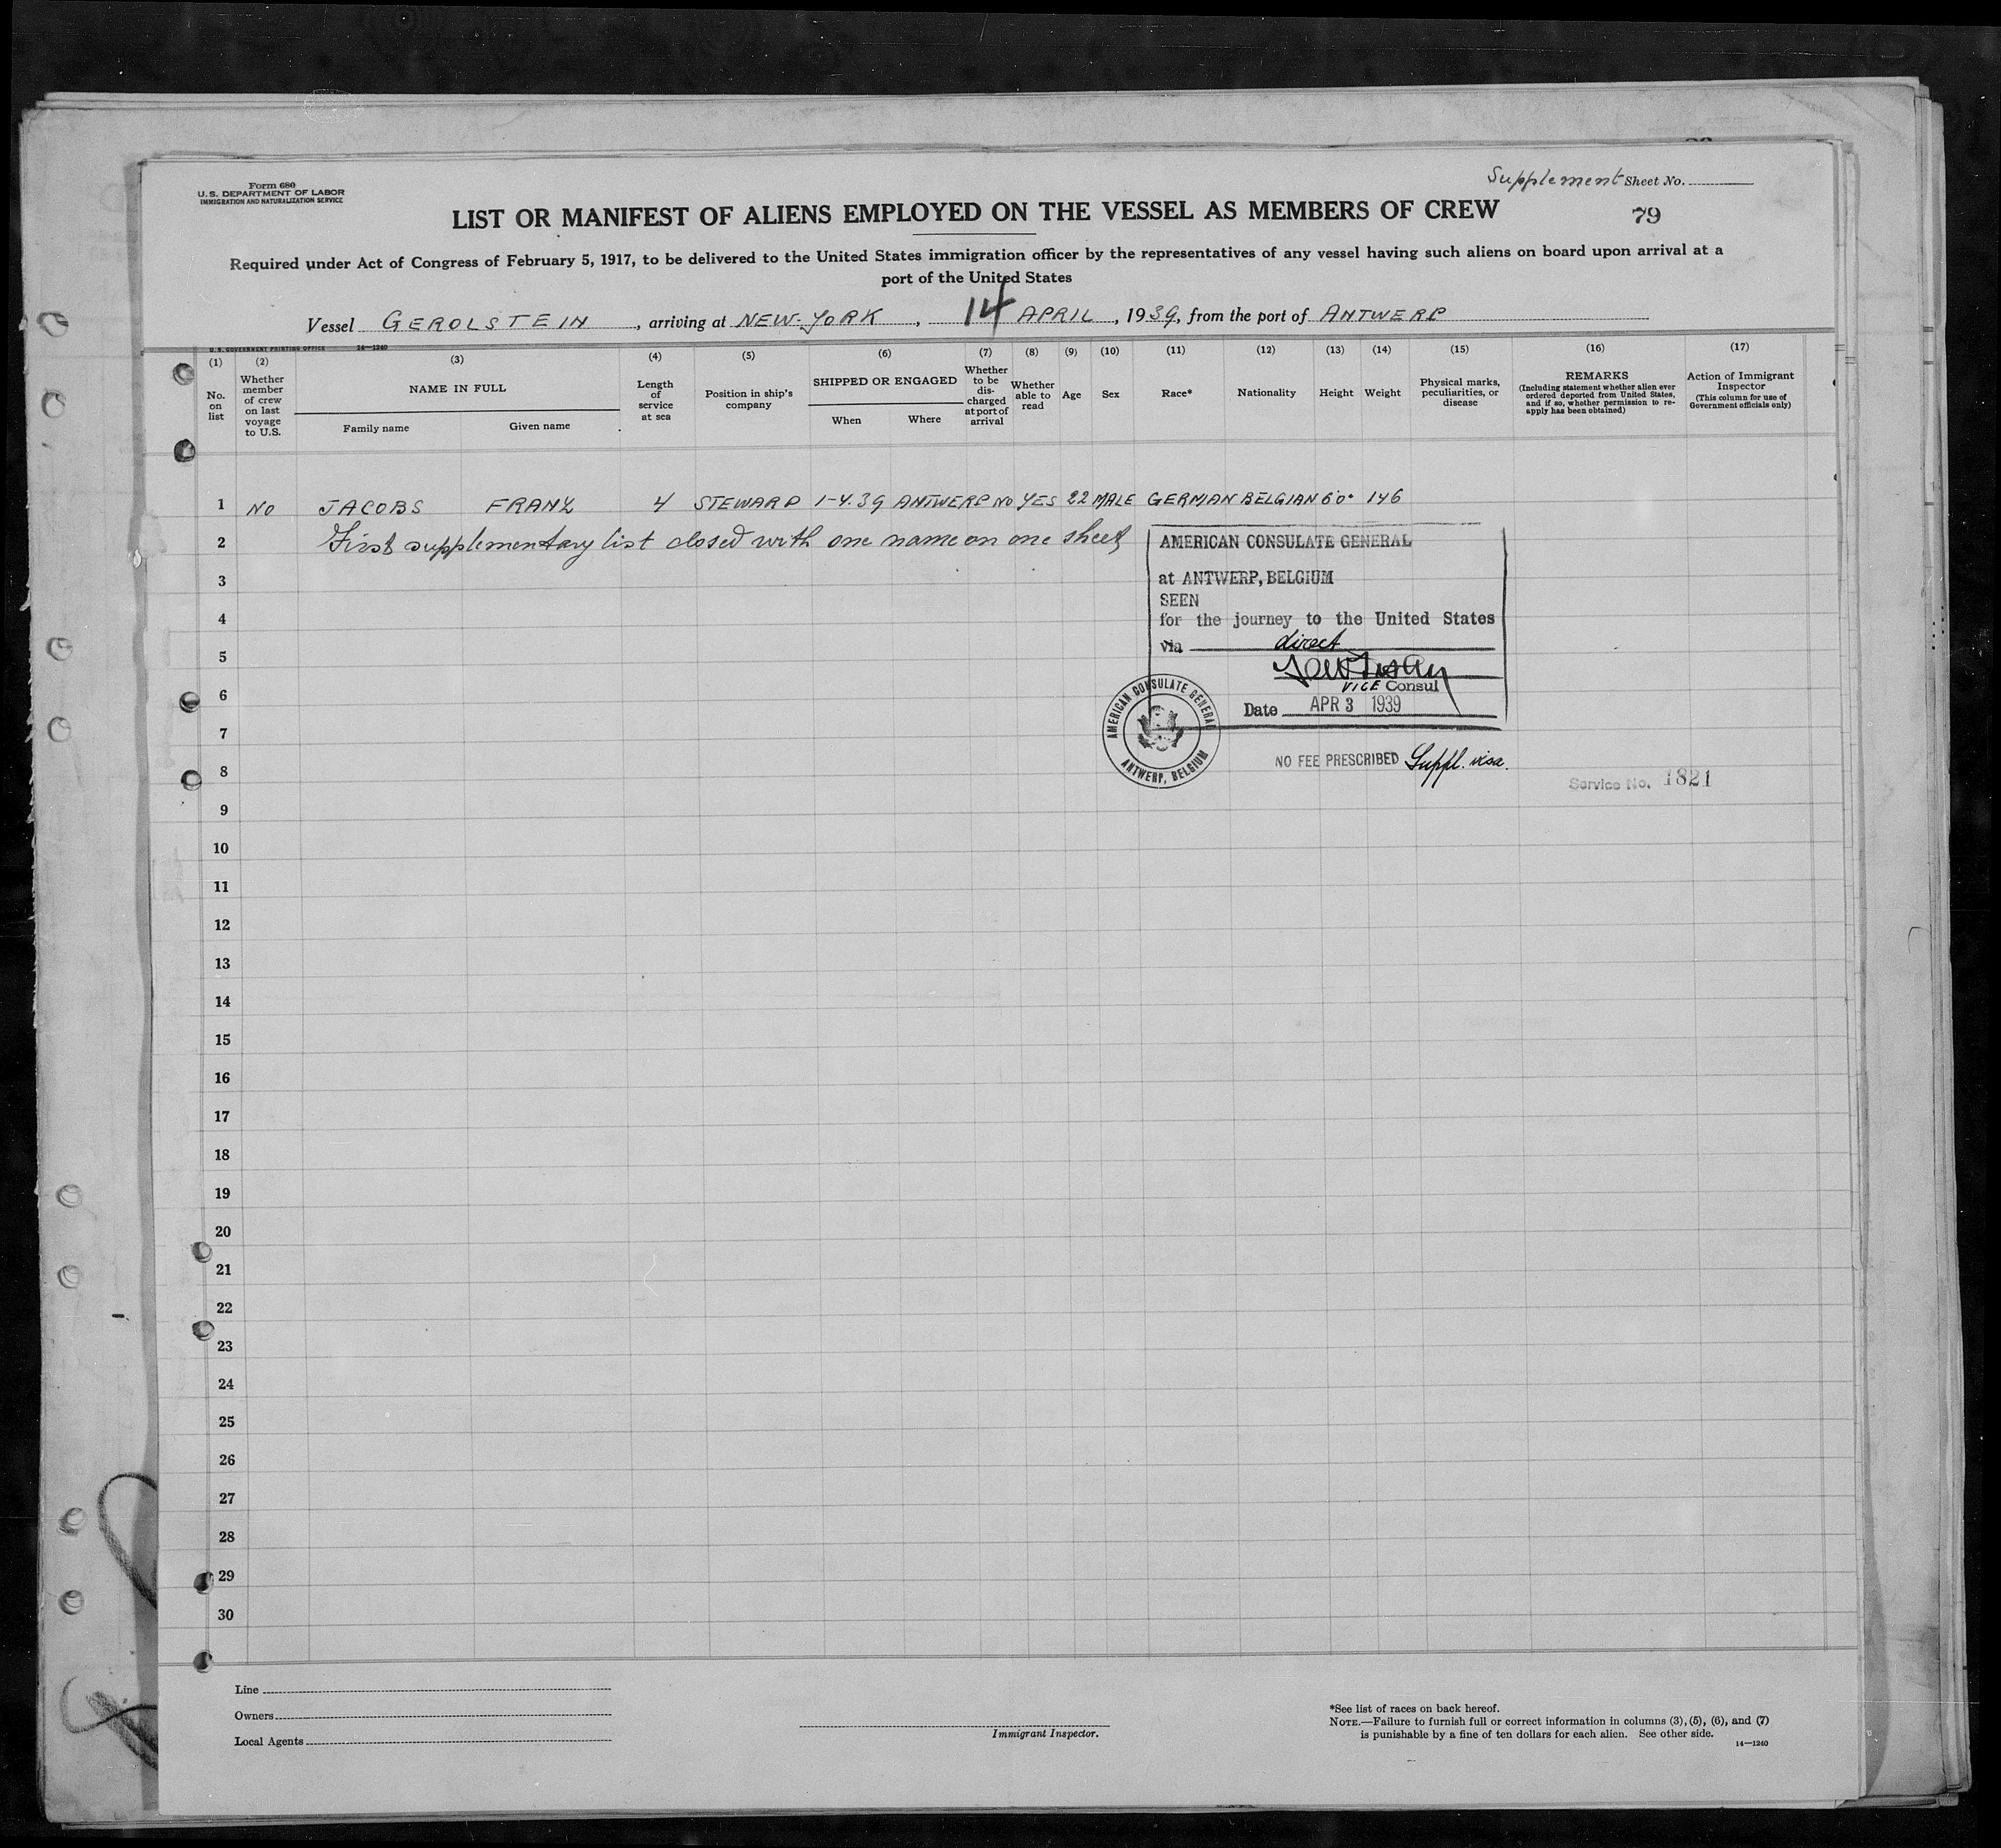 Form 680
U.S. DEPARTMENT OF LABOR
IMMIGRATION AND NATURALIZATION SERVICE
Supplement Sheet No.
LIST OR MANIFEST OF ALIENS EMPLOYED ON THE VESSEL AS MEMBERS OF CREW
79
Required under Act of Congress of February 5, 1917, to be delivered to the United States immigration officer by the representatives of any vessel having such aliens on board upon arrival at a
port of the United States
Vessel GEROLSTEIN, arriving at NEW-YORK, 14 APRIL, 1939, from the port of ANTWERP
U.S. GOVERNMENT PRINTING OFFICE 14—1240
(1) (2) (3) (4) (5) (6) (7) (8) (9) (10) (11) (12) (13) (14) (15) (16) (17)
No. on list
Whether member of crew on last voyage to U.S.
NAME IN FULL
Family name Given name
Length of service at sea
Position in ship's company
SHIPPED OR ENGAGED
When Where
Whether to be discharged at port of arrival
Whether able to read
Age
Sex
Race*
Nationality
Height
Weight
Physical marks, peculiarities, or disease
REMARKS
(Including statement whether alien ever ordered deported from United States, and if so, whether permission to re-apply has been obtained)
Action of Immigrant Inspector
(This column for use of Government officials only)
1 NO JACOBS FRANZ 4 STEWARD 1-4.39 ANTWERP NO YES 22 MALE GERMAN BELGIAN 6'0" 146
2 First supplementary list closed with one name on one sheet
AMERICAN CONSULATE GENERAL
at ANTWERP, BELGIUM
SEEN
for the journey to the United States
via direct
VICE Consul
Date APR 3 1939
AMERICAN CONSULATE GENERAL
ANTWERP, BELGIUM
NO FEE PRESCRIBED Suppl. visa.
Service No. 1821
3
4
5
6
7
8
9
10
11
12
13
14
15
16
17
18
19
20
21
22
23
24
25
26
27
28
29
30
Line
Owners
Local Agents
Immigrant Inspector.
*See list of races on back hereof.
NOTE.—Failure to furnish full or correct information in columns (3), (5), (6), and (7)
is punishable by a fine of ten dollars for each alien. See other side.
14—1240